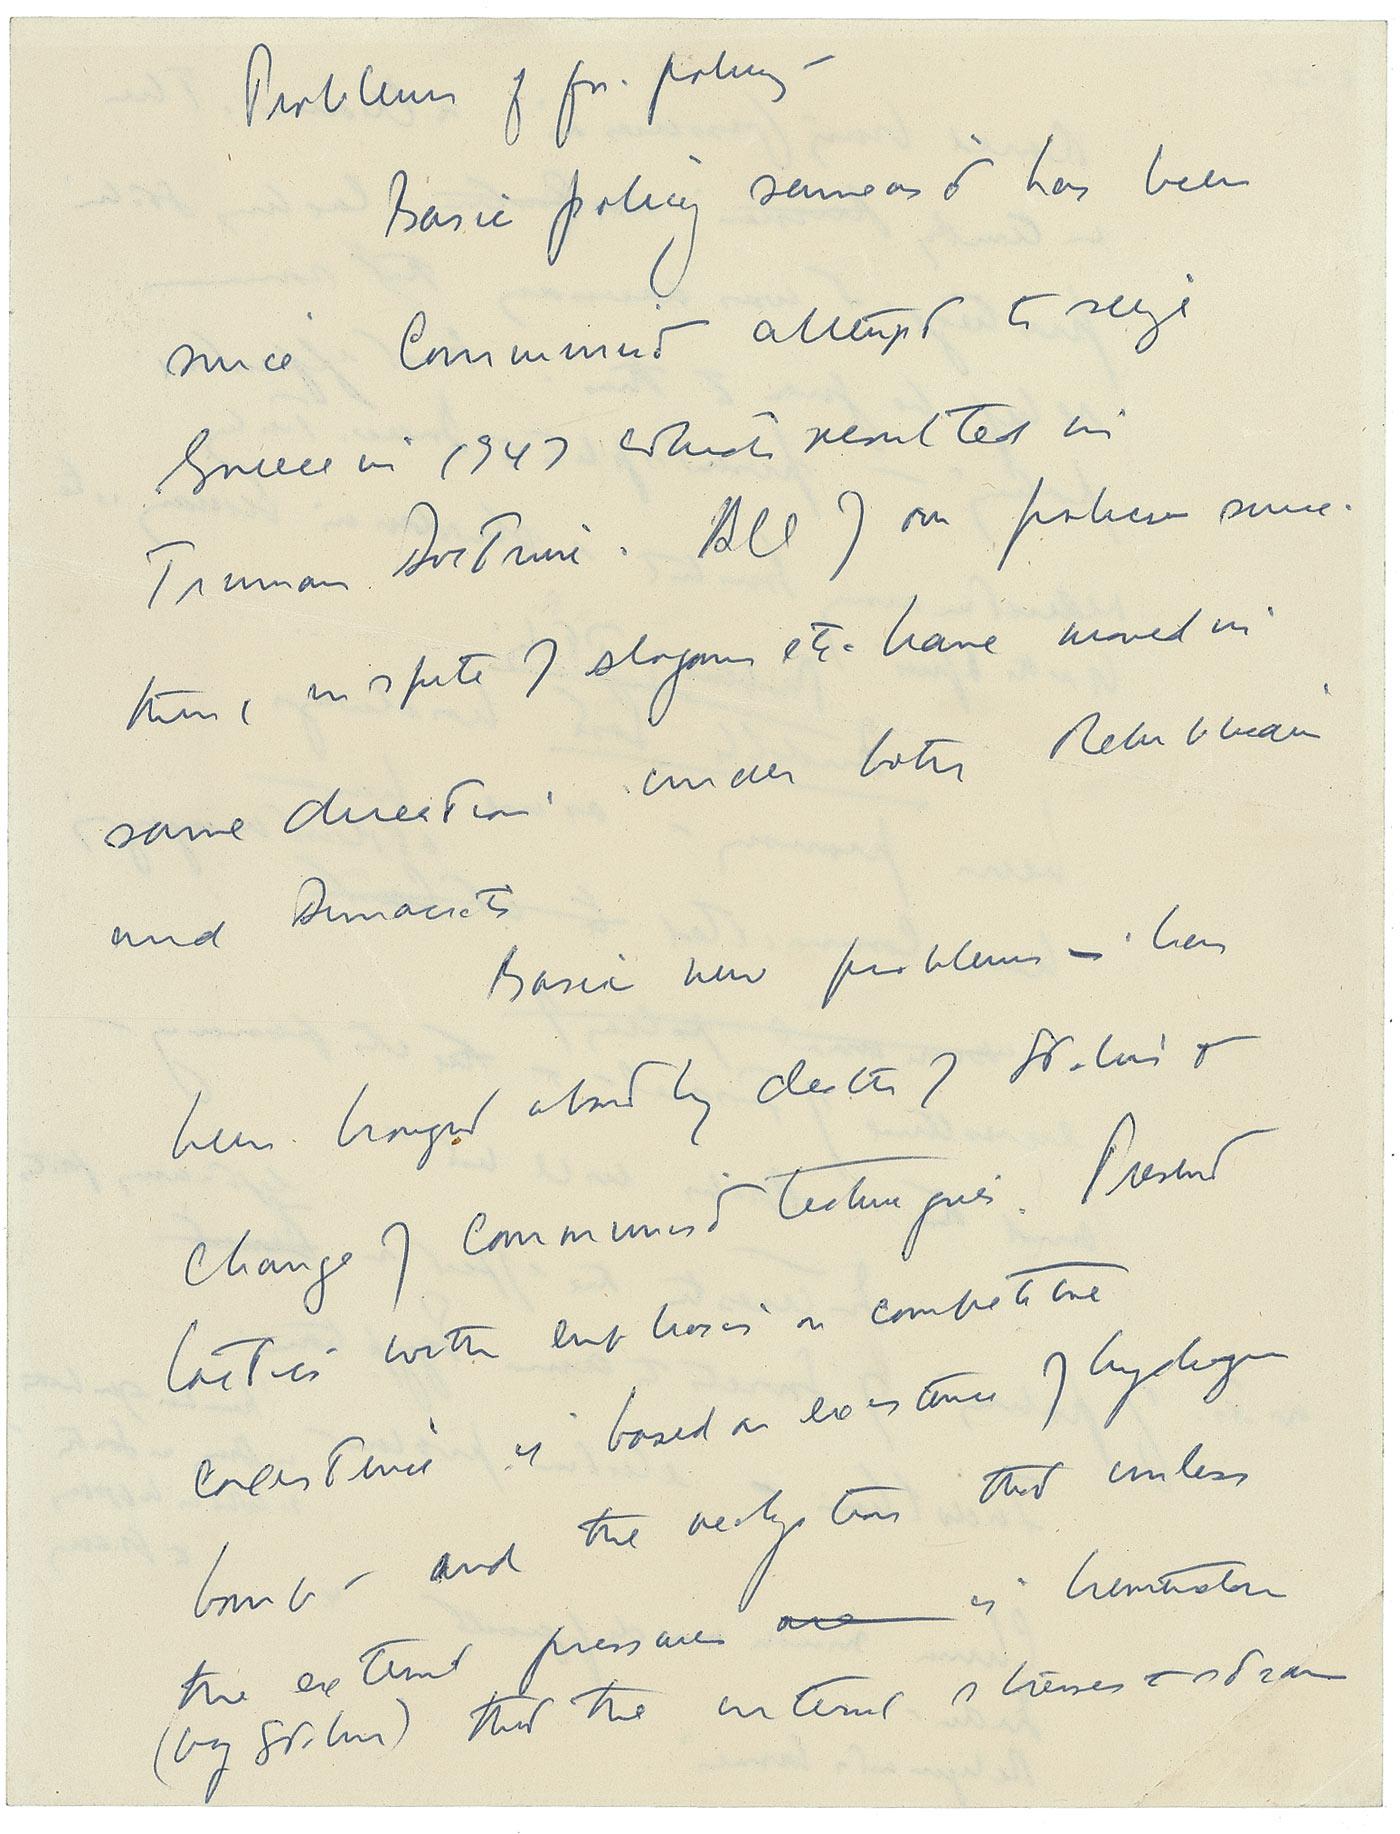 Problems of for. policy –
Basic policy same as it has been
since Communist attempt to seize
Greece in 1947 which resulted in
Truman Doctrine. All of our policies since
then, in spite of slogans etc. have moved in
same direction under both Republican
and Democrats
Basic new problems – has
been brought about by death of Stalin &
change of communist techniques. Present
tactics with emphasis on competitive
coexistence is based on existence of hydrogen
bomb – and the realization that unless
the external pressures are is
(by Stalin) that the internal stresses & strain